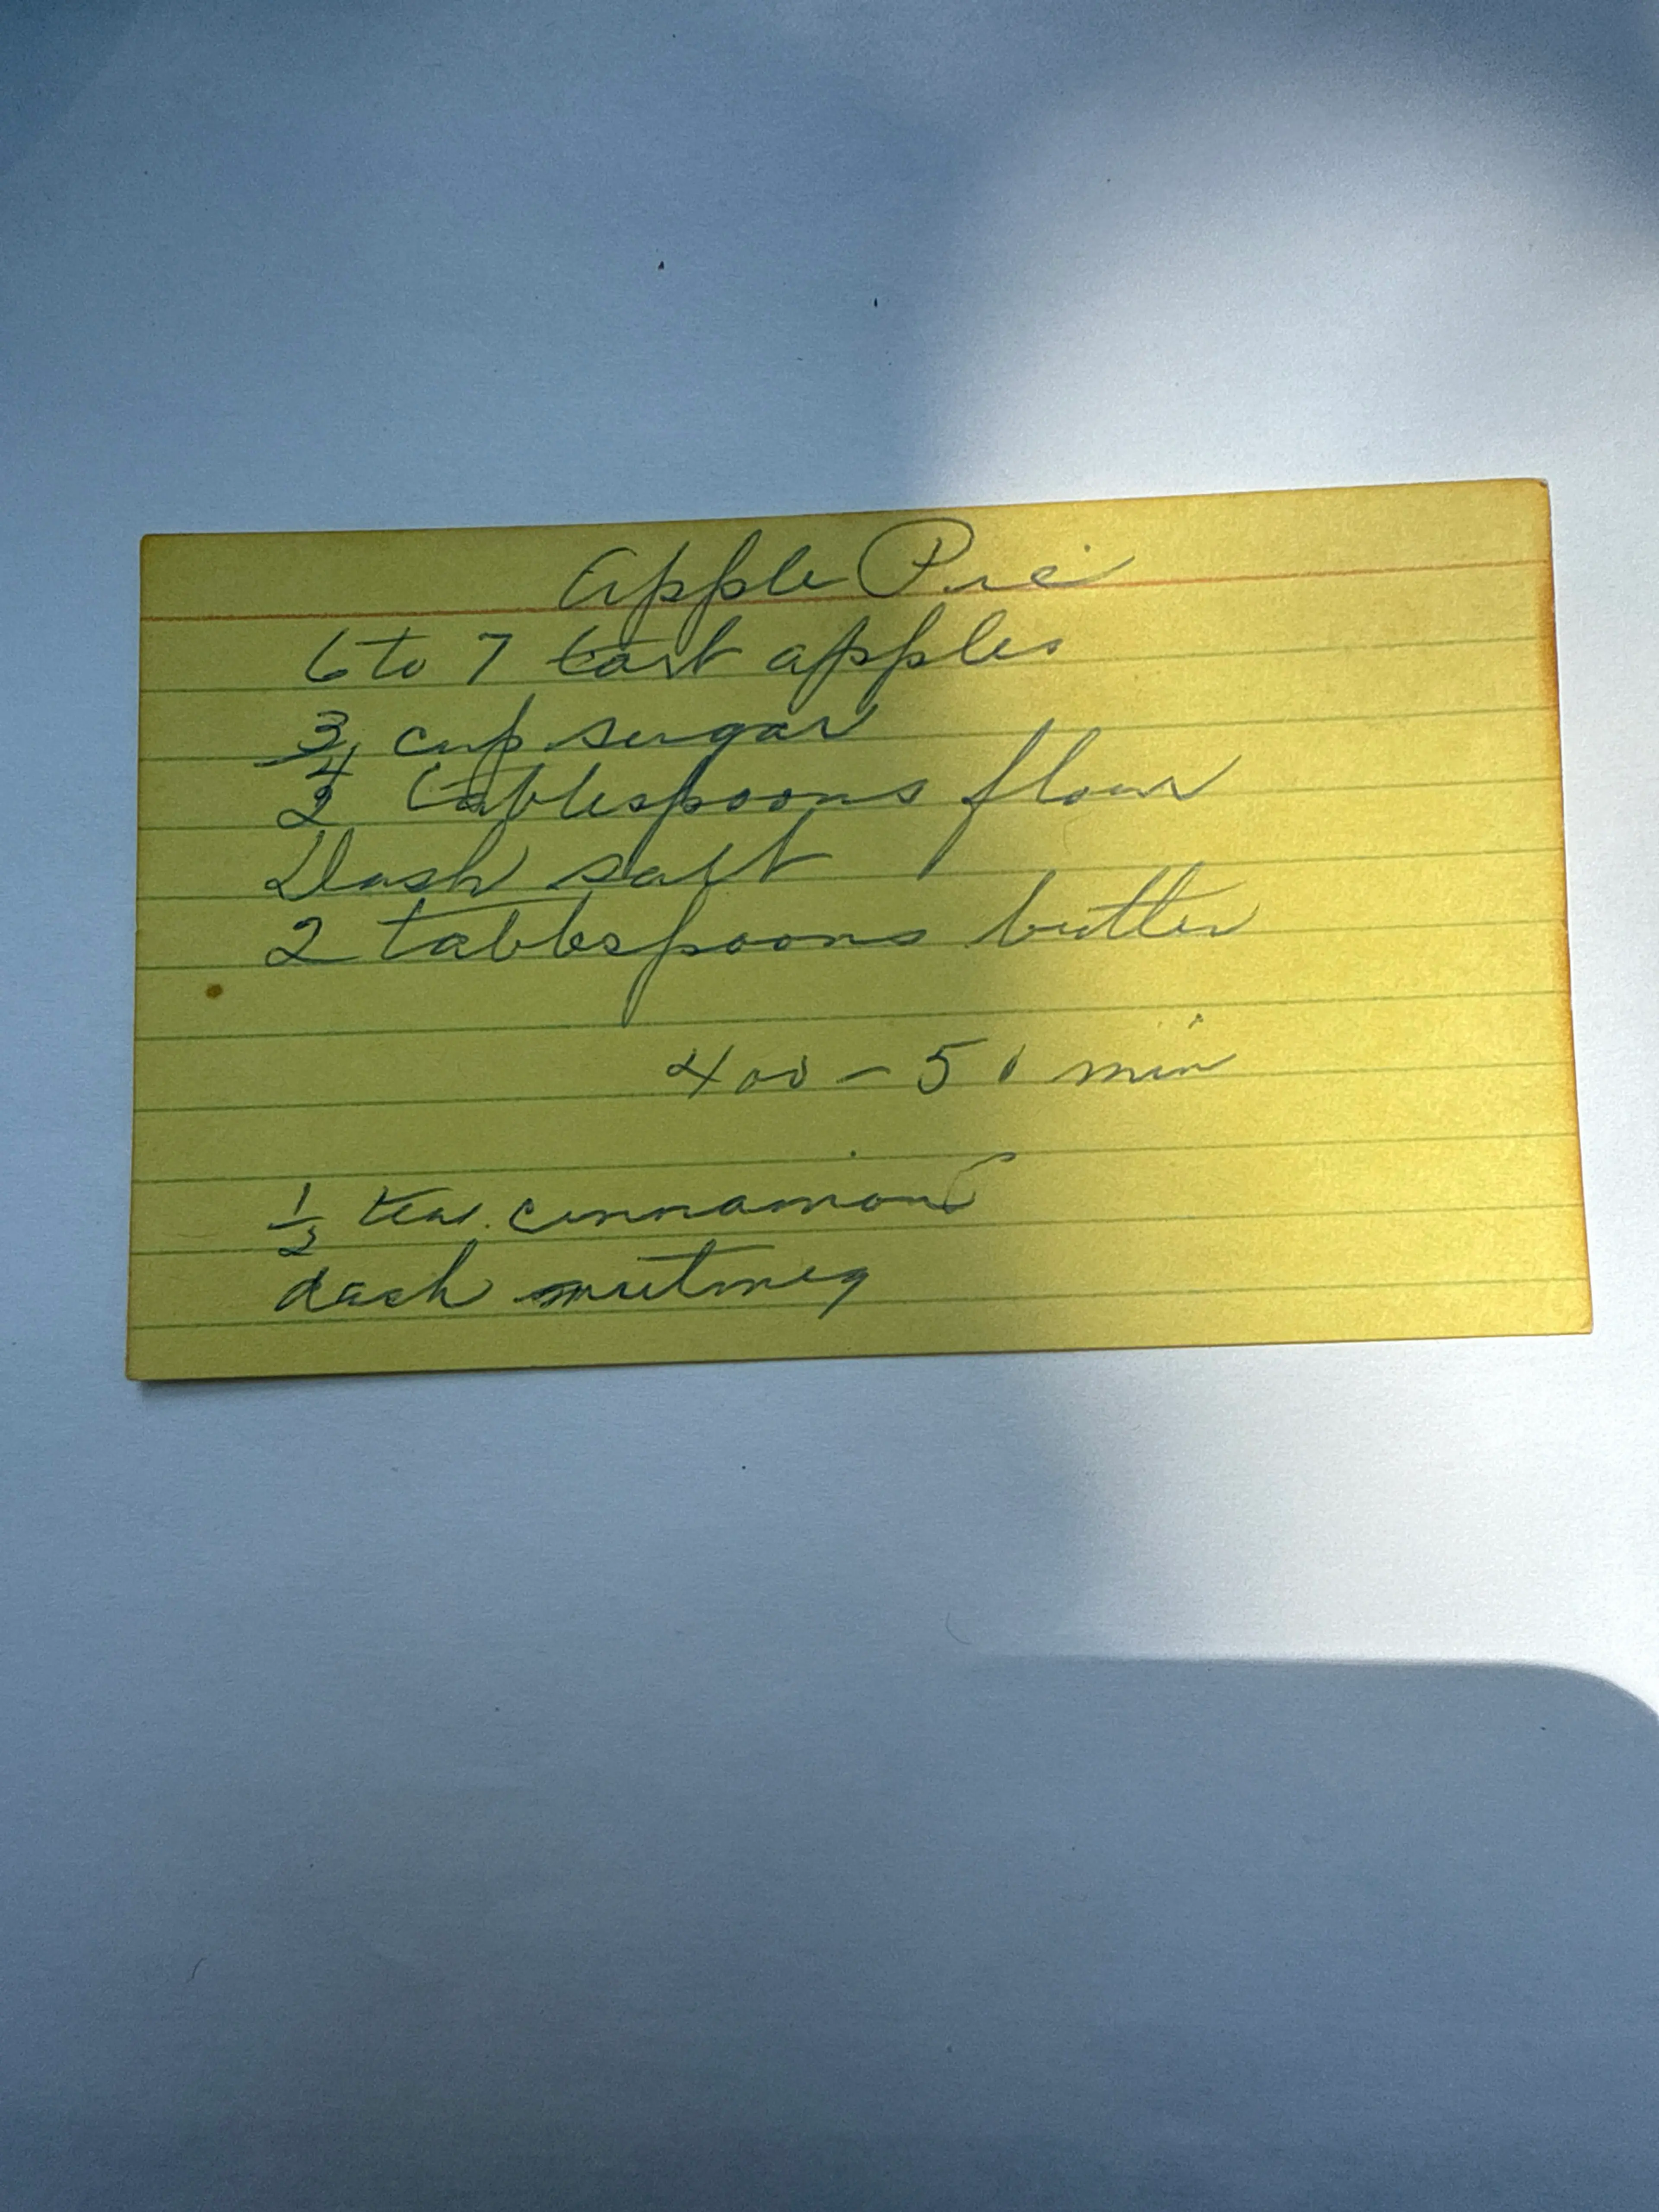 Apple Pie
6 to 7 tart apples
3/4 cup sugar
2 tablespoons flour
Dash salt
2 tablespoons butter
400 - 50 min
1/2 tea. cinnamon
dash nutmeg